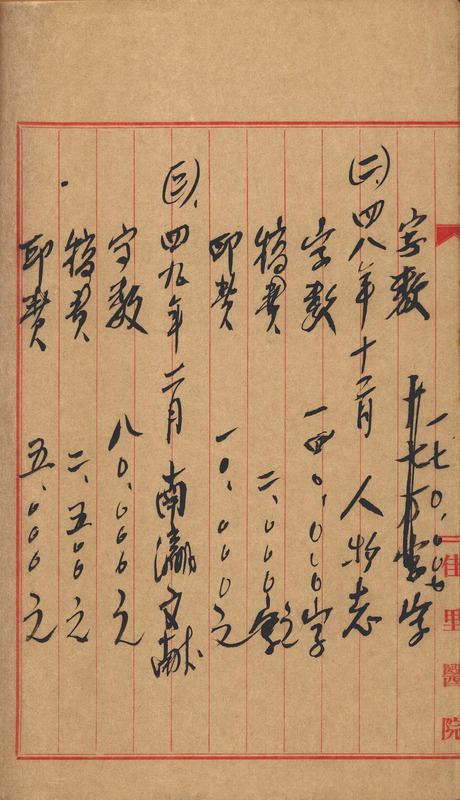 佳里醫院
字数 一七〇,〇〇〇字
(二)、四八年十二月 人物志
字数 一四〇,〇〇〇字
稿費 二、〇〇〇元
印費 一〇、〇〇〇元
(三)、四九年二月 南瀛文献
字数 八〇,〇〇〇元
稿費 二、五〇〇元
印費 五、〇〇〇元